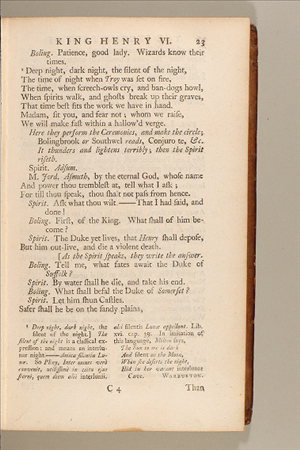 KING HENRY VI. 23
Boling. Patience, good lady. Wizards know their
times.
¹ Deep night, dark night, the silent of the night,
The time of night when Troy was set on fire,
The time, when screech-owls cry, and ban-dogs howl,
When spirits walk, and ghosts break up their graves,
That time best fits the work we have in hand.
Madam, sit you, and fear not; whom we raise,
We will make fast within a hallow'd verge.
Here they perform the Ceremonies, and make the circle;
Bolingbrook or Southwel reads, Conjuro te, &c.
It thunders and lightens terribly; then the Spirit
riseth.
Spirit. Adsum.
M. Jord. Asmuth, by the eternal God, whose name
And power thou tremblest at, tell what I ask;
For till thou speak, thou shalt not pass from hence.
Spirit. Ask what thou wilt.—That I had said, and
done!
Boling. First, of the King. What shall of him be-
come?
Spirit. The Duke yet lives, that Henry shall depose,
But him out-live, and die a violent death.
[As the Spirit speaks, they write the answer.
Boling. Tell me, what fates await the Duke of
Suffolk?
Spirit. By water shall he die, and take his end.
Boling. What shall befal the Duke of Somerset?
Spirit. Let him shun Castles.
Safer shall he be on the sandy plains,
¹ Deep night, dark night, the
silent of the night.] The
silent of the night is a classical ex-
pression: and means an interlu-
nar night.—Amica silentia Lu-
næ. So Pliny, Inter omnes verò
convenit, utilissimè in coitu ejus
sterni, quem diem alii interlunii,
alii silentis Lunæ appellant. Lib.
xvi. cap. 39. In imitation of
this language, Milton says,
The Sun to me is dark
And silent as the Moon,
When she deserts the night,
Hid in her vacant interlunar
Cave. WARBURTON.
C 4 Than